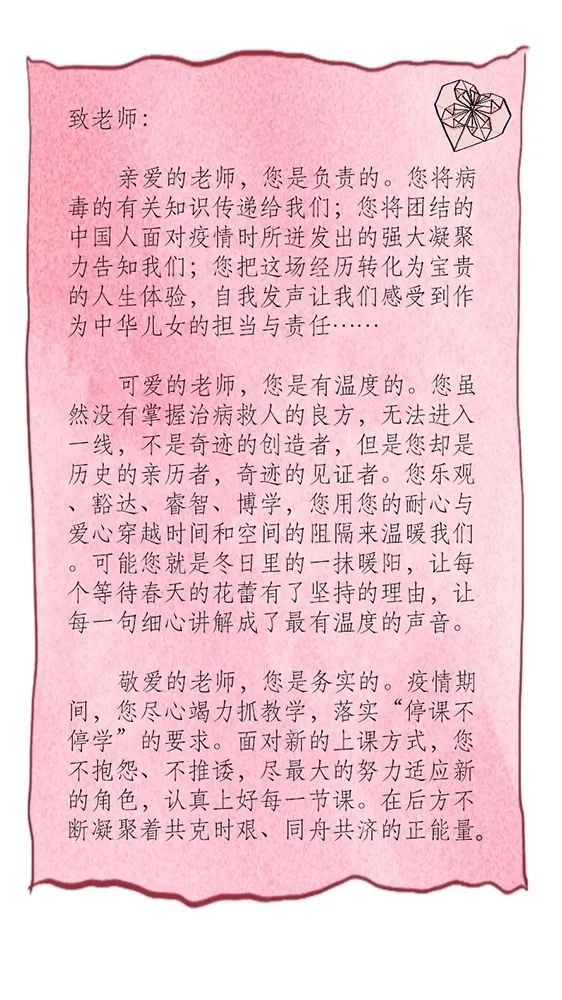 致老师：
亲爱的老师，您是负责的。您将病
毒的有关知识传递给我们；您将团结的
中国人面对疫情时所迸发出的强大凝聚
力告知我们；您把这场经历转化为宝贵
的人生体验，自我发声让我们感受到作
为中华儿女的担当与责任……
可爱的老师，您是有温度的。您虽
然没有掌握治病救人的良方，无法进入
一线，不是奇迹的创造者，但是您却是
历史的亲历者，奇迹的见证者。您乐观
、豁达、睿智、博学，您用您的耐心与
爱心穿越时间和空间的阻隔来温暖我们
。可能您就是冬日里的一抹暖阳，让每
个等待春天的花蕾有了坚持的理由，让
每一句细心讲解成了最有温度的声音。
敬爱的老师，您是务实的。疫情期
间，您尽心竭力抓教学，落实“停课不
停学”的要求。面对新的上课方式，您
不抱怨、不推诿，尽最大的努力适应新
的角色，认真上好每一节课。在后方不
断凝聚着共克时艰、同舟共济的正能量。